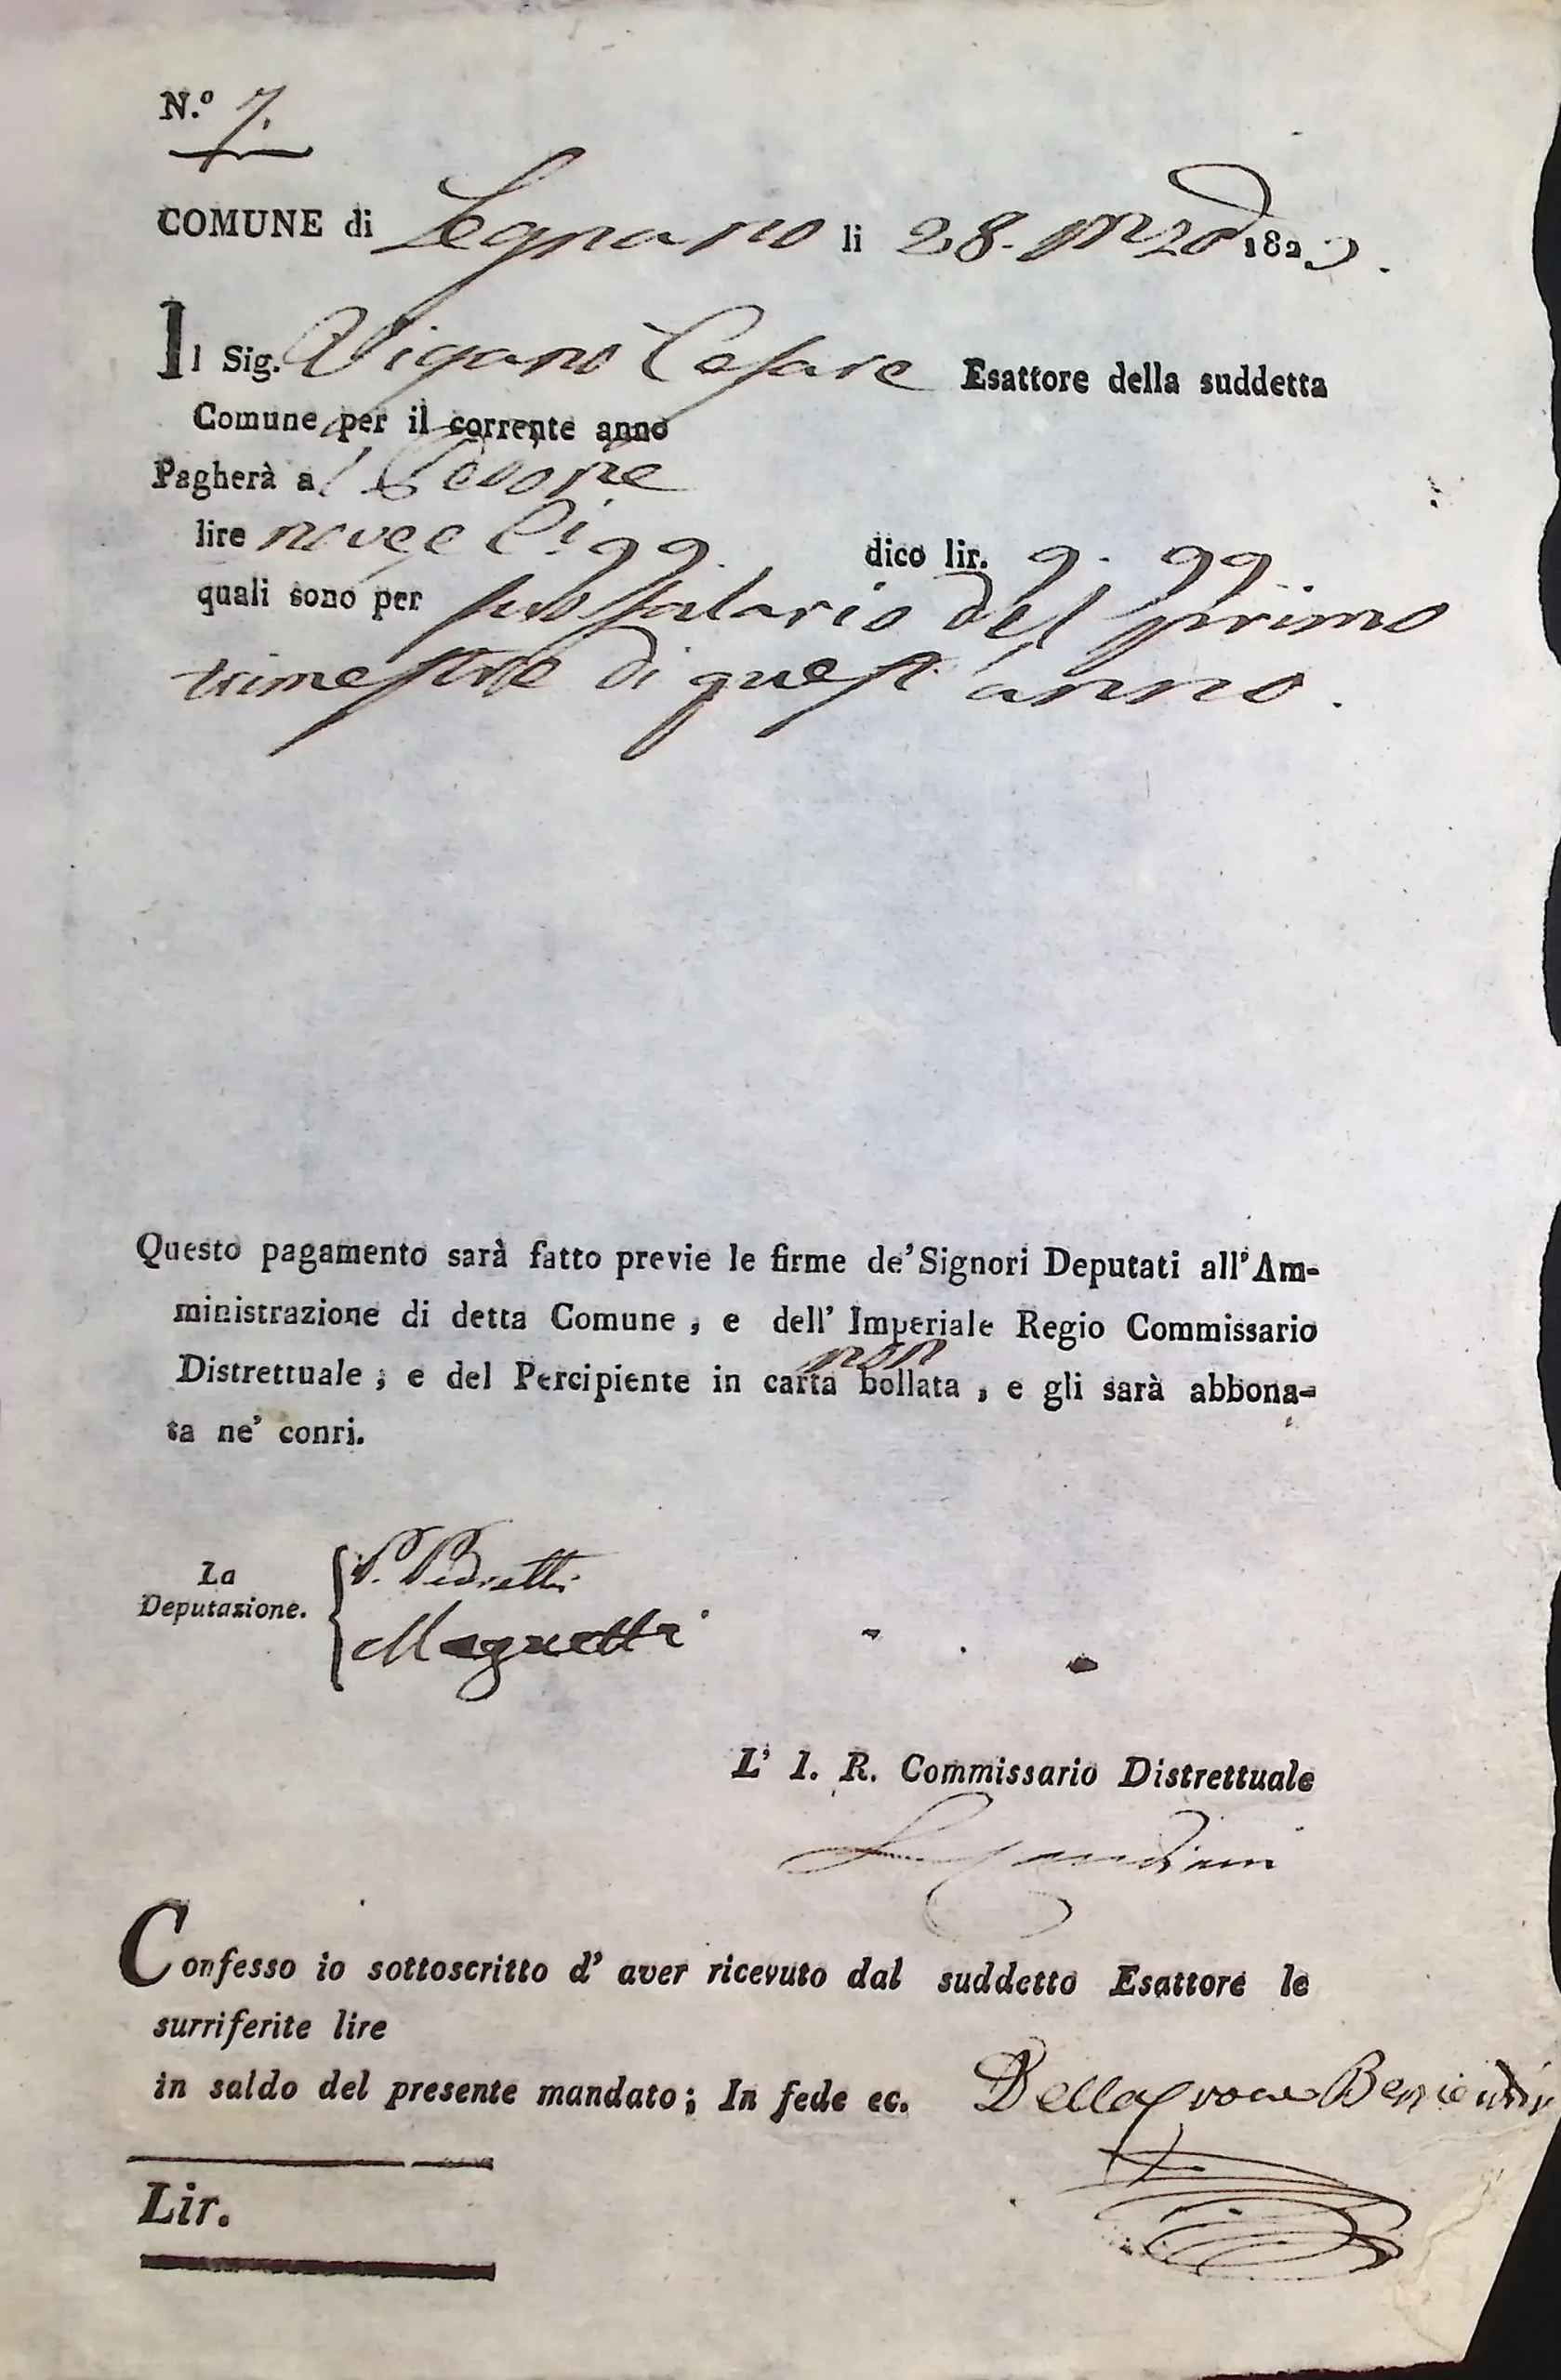 N.º 7.
COMUNE di Legnano li 28. Mzo 182
Il Sig. Vigano Cesare Esattore della suddetta
Comune per il corrente anno
Pagherà al
lire nove e C.i 99. dico lir. 9. 99.
quali sono per suo salario del primo
trimestre di quest'anno.
Questo pagamento sarà fatto previe le firme de' Signori Deputati all'Am-
ministrazione di detta Comune, e dell' Imperiale Regio Commissario
non
Distrettuale; e del Percipiente in carta bollata, e gli sarà abbona-
ta ne' conri.
La
Deputazione.
P. Pedretti
Magnetti
L' I. R. Commissario Distrettuale
Confesso io sottoscritto d' aver ricevuto dal suddetto Esattore le
surriferite lire
in saldo del presente mandato; In fede ec. Dellacroce
Lir.